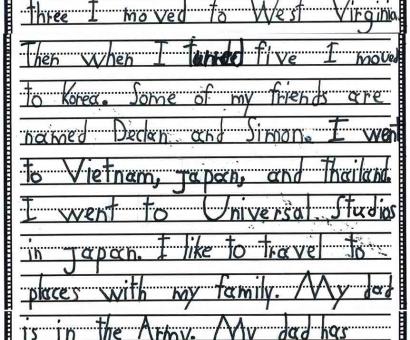 three I moved to West Virginia.
Then when I turned five I moved
to Korea. Some of my friends are
named Declan and Simon. I went
to Vietnam, japan, and Thailand.
I went to Universal Studios
in japan. I like to travel to
places with my family. My dad
is in the Army. My dad has